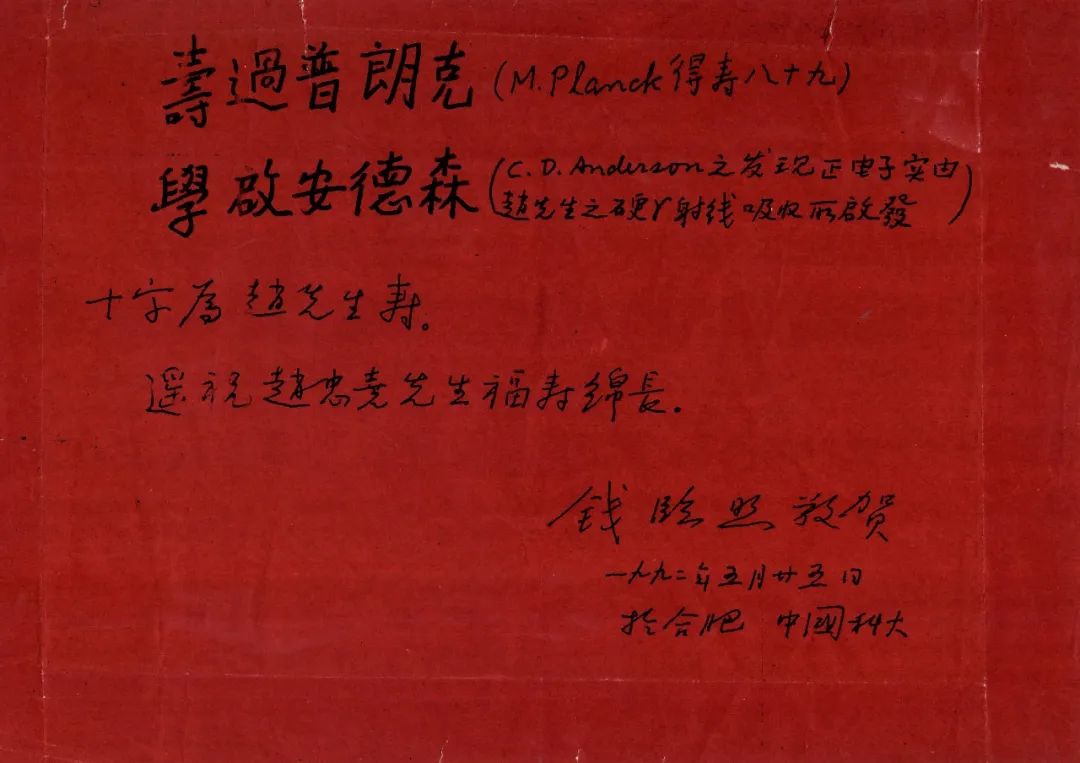 壽過普朗克(M.Planck得寿八十九)
學啟安德森(C.D.Anderson之发现正电子实由
趙先生之硬γ射线吸收所啟發)
十字為趙先生寿。
遥祝趙忠堯先生福寿綿長.
钱临照敬贺
一九九二年五月廿五日
於合肥 中國科大